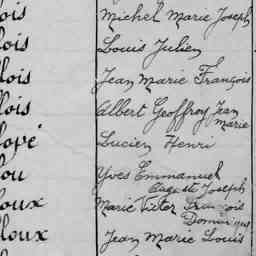 ois Michel Marie Joseph
lois Louis Julien
llois Jean Marie François
lois Albert Geoffroy Jean
Marie
lopé Lucien Henri
lou Yves Emmanuel
Auguste Joseph
loux Marie Victor François
Dominique
lloux Jean Marie Louis